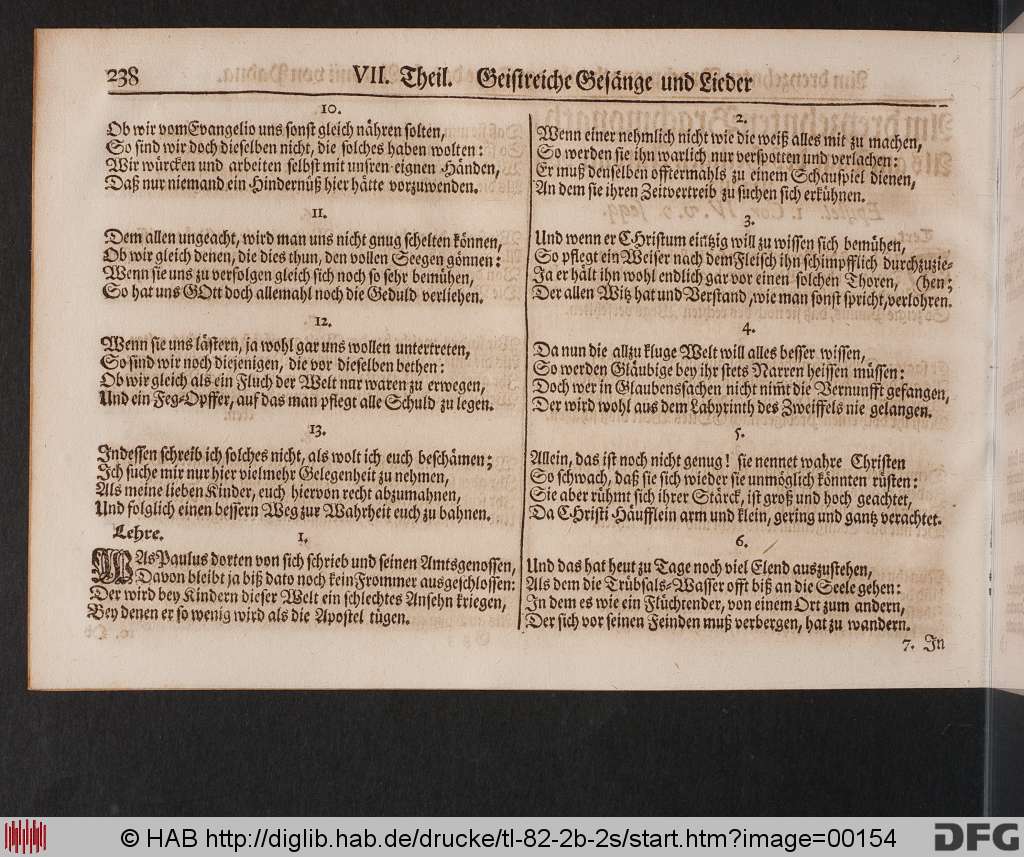 238 VII. Theil. Geistreiche Gesänge und Lieder
10.
Ob wir vom Evangelio uns sonst gleich nähren solten,
So sind wir doch dieselben nicht, die solches haben wolten:
Wir würcken und arbeiten selbst mit unsren eignen Händen,
Daß nur niemand ein Hindernüß hier hätte vorzuwenden.
11.
Dem allen ungeacht, wird man uns nicht gnug schelten können,
Ob wir gleich denen, die dies thun, den vollen Seegen gönnen:
Wenn sie uns zu verfolgen gleich sich noch so sehr bemühen,
So hat uns GOtt doch allemahl noch die Geduld verliehen.
12.
Wenn sie uns lästern, ja wohl gar uns wollen untertreten,
So sind wir noch diejenigen, die vor dieselben bethen:
Ob wir gleich als ein Fluch der Welt nur waren zu erwegen,
Und ein Feg-Opffer, auf das man pflegt alle Schuld zu legen.
13.
Indessen schreib ich solches nicht, als wolt ich euch beschämen;
Ich suche mir nur hier vielmehr Gelegenheit zu nehmen,
Als meine lieben Kinder, euch hiervon recht abzumahnen,
Und folglich einen bessern Weg zur Wahrheit euch zu bahnen.
Lehre. 1.
WAs Paulus dorten von sich schrieb und seinen Amtsgenossen,
Davon bleibt ja biß dato noch kein Frommer ausgeschlossen:
Der wird bey Kindern dieser Welt ein schlechtes Ansehn kriegen,
Bey denen er so wenig wird als die Apostel tügen.
2.
Wenn einer nehmlich nicht wie die weiß alles mit zu machen,
So werden sie ihn warlich nur verspotten und verlachen:
Er muß denselben offtermahls zu einem Schauspiel dienen,
An dem sie ihren Zeitvertreib zu suchen sich erkühnen.
3.
Und wenn er CHristum eintzig will zu wissen sich bemühen,
So pflegt ein Weiser nach dem Fleisch ihn schimpfflich durchzuzie-
Ja er hält ihn wohl endlich gar vor einen solchen Thoren, (hen;
Der allen Witz hat und Verstand, wie man sonst spricht, verlohren.
4.
Da nun die allzu kluge Welt will alles besser wissen,
So werden Gläubige bey ihr stets Narren heissen müssen:
Doch wer in Glaubenssachen nicht nim̃t die Vernunfft gefangen,
Der wird wohl aus dem Labyrinth des Zweiffels nie gelangen.
5.
Allein, das ist noch nicht genug! sie nennet wahre Christen
So schwach, daß sie sich wieder sie unmöglich könnten rüsten:
Sie aber rühmt sich ihrer Stärck, ist groß und hoch geachtet,
Da CHristi Häufflein arm und klein, gering und gantz verachtet.
6.
Und das hat heut zu Tage noch viel Elend auszustehen,
Als dem die Trübsals-Wasser offt biß an die Seele gehen:
In dem es wie ein Flüchtender, von einem Ort zum andern,
Der sich vor seinen Feinden muß verbergen, hat zu wandern.
7. In
© HAB http://diglib.hab.de/drucke/tl-82-2b-2s/start.htm?image=00154
DFG